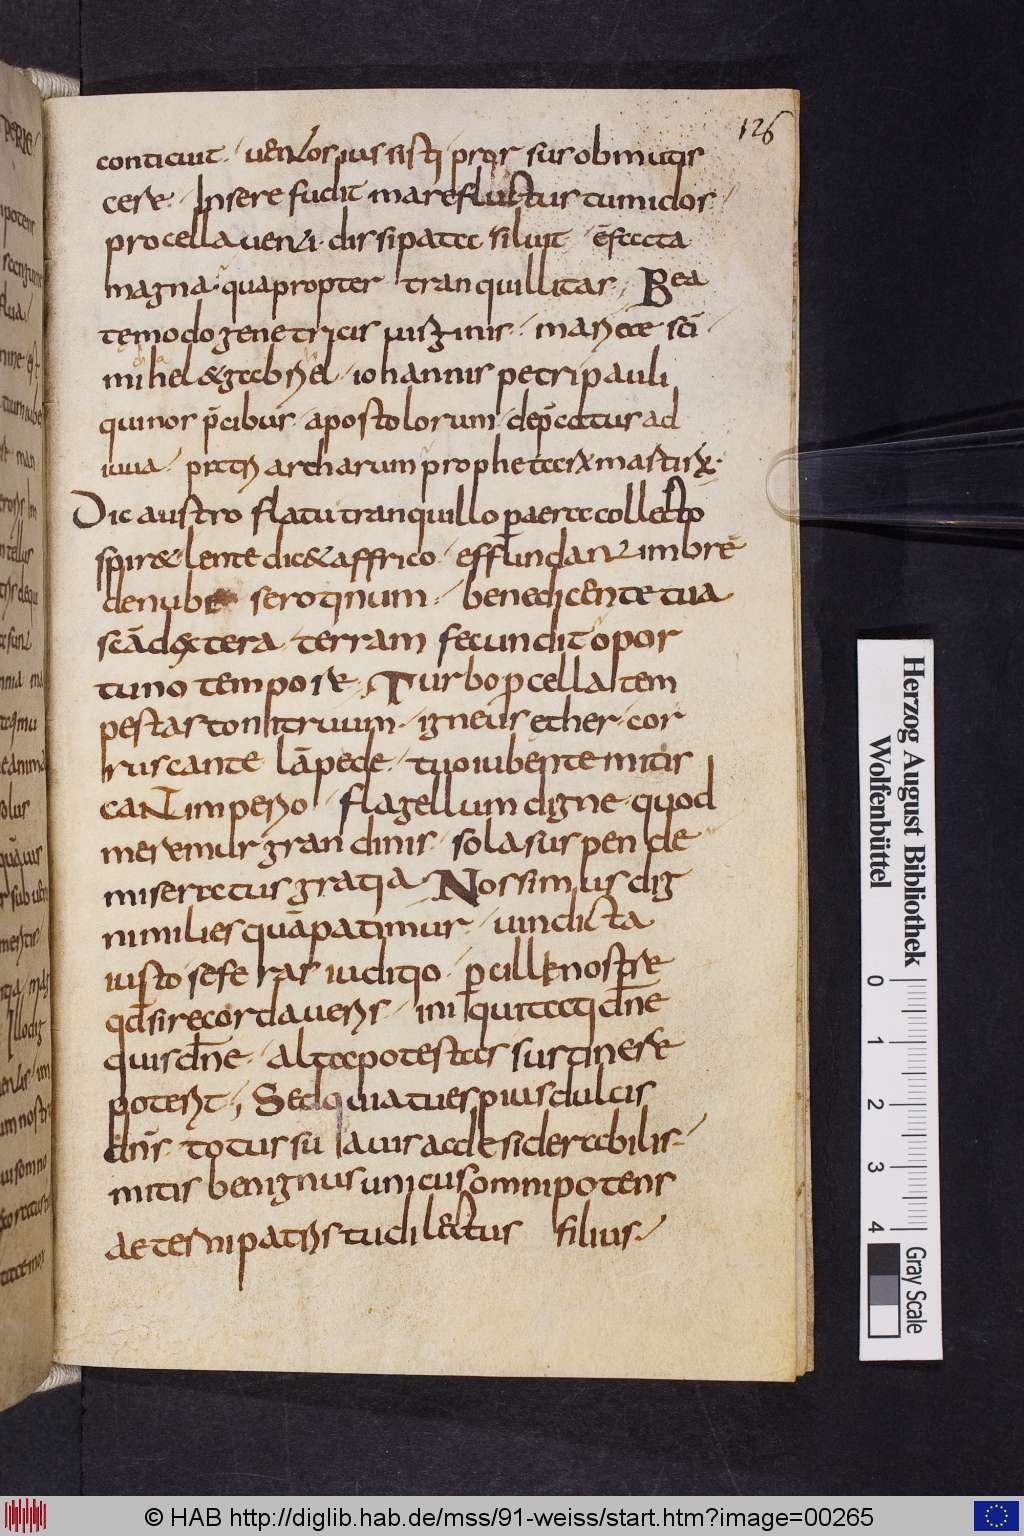 126
conticuit. uentos ius sisti. prorsus obmutis
cere. Insere fudit mare fluctus tumidos.
procella uenti. dissipata siluit. ēfecta
magna. quapropter tranquillitas; Bea
te modo genetricis uirginis. mariae sci
mihel & gabrihel. iohannis petri pauli
quinos p̄cibus. apostolorum. dep̄catur ad
iuua. patriarcharum prophetarū martirū.
Dic austro flatu tranquillo p aera collecto
spir& lente dic & affrico. effundant imbrē
de nube serotinum. benedicente tua
scā dextera. terram fecundit opor
tuno tempore. Turbo pcella tem
pestas tonitruum. igneus ether. cor
ruscante lāpade. tuo iubente mitis
cant imperio. flagellum digne quod
meremur grandinis. sola suspende
miseratus gratia. Nos simus dig
ni milies quā patimur. uindicta
iusto seferas iuditio. pcilli nostre
qd si recordaueris. iniquitati dn̄e
quis dn̄e. alta potestas sustinere
poterit; Sed quia tu es pius dulcis
dn̄s. totus suauis ac desiderabilis.
mitis benignus unicus omnipotens
aeterni patris tu dilectus filius.
Herzog August Bibliothek
Wolfenbüttel
0 1 2 3 4
Gray Scale
© HAB http://diglib.hab.de/mss/91-weiss/start.htm?image=00265